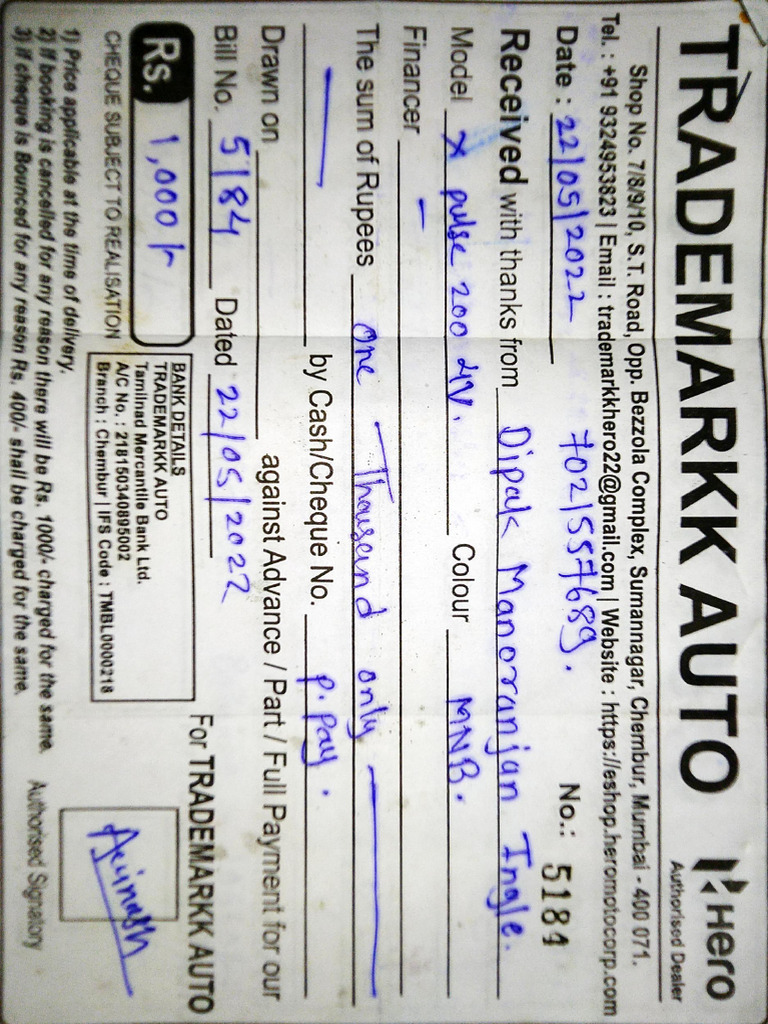 TRADEMARKK AUTO
Hero
Authorised Dealer
Shop No. 7/8/9/10, S.T. Road, Opp. Bezzola Complex, Sumannagar, Chembur, Mumbai - 400 071.
Tel. : +91 9324953823 | Email : trademarkkhero22@gmail.com | Website : https://eshop.heromotocorp.com
Date : 22/05/2022 7021557689. No.: 5184
Received with thanks from Dipak Manoranjan Ingle.
Model X pulse 200 4V. Colour MNB.
Financer -
The sum of Rupees One Thousand only
by Cash/Cheque No. P. Pay.
Drawn on against Advance / Part / Full Payment for our
Bill No. 5184 Dated 22/05/2022
For TRADEMARKK AUTO
Rs. 1,000/-
CHEQUE SUBJECT TO REALISATION
BANK DETAILS
TRADEMARKK AUTO
Tamilnad Mercantile Bank Ltd.
A/C No. : 218150340895002
Branch : Chembur | IFS Code : TMBL0000218
Avinash
1) Price applicable at the time of delivery.
2) If booking is cancelled for any reason there will be Rs. 1000/- charged for the same.
3) If cheque is Bounced for any reason Rs. 400/- shall be charged for the same.
Authorised Signatory